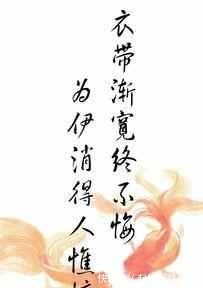 衣带渐宽终不悔
为伊消得人憔